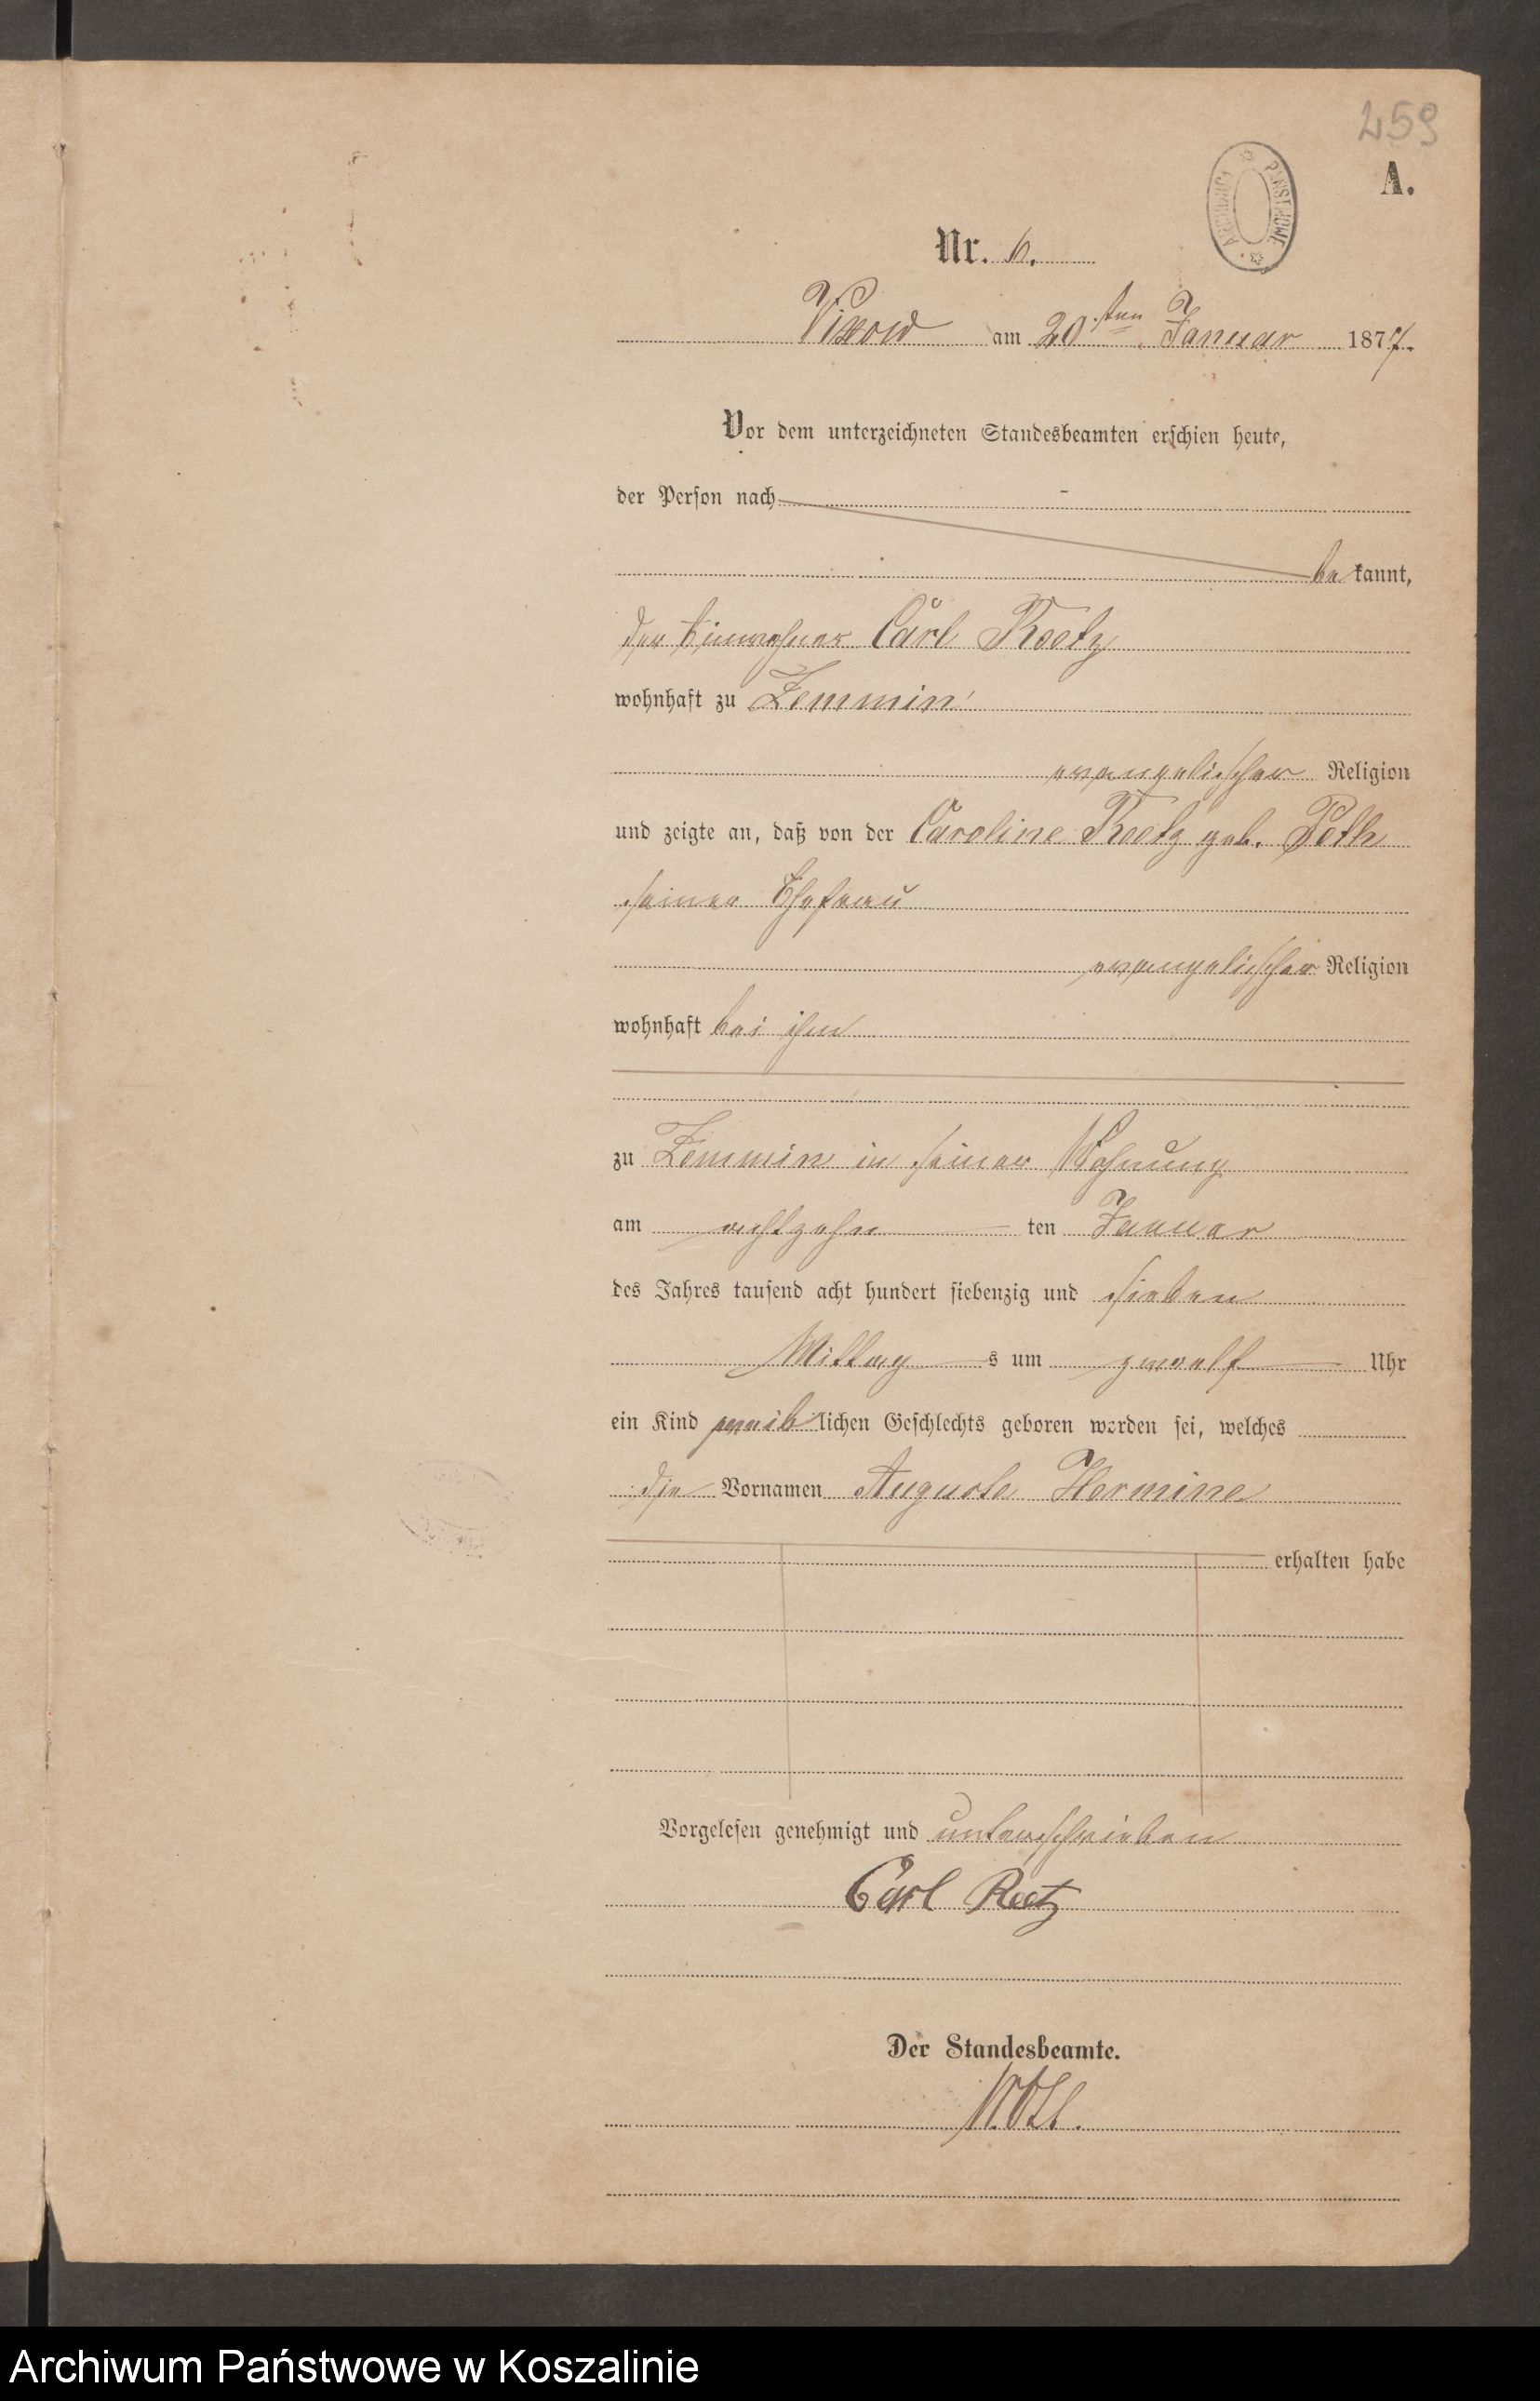 259
A.
ARCHIWUM PAŃSTWOWE
Nr. 6.
Vixow am 20sten Januar 1877.
Vor dem unterzeichneten Standesbeamten erschien heute,
der Person nach
bekannt,
der Einwohner Carl Reetz
wohnhaft zu Zemmin
evangelischer Religion
und zeigte an, daß von der Caroline Reetz geb. Poth
seiner Ehefrau
evangelischer Religion
wohnhaft bei ihm
zu Zemmin in seiner Wohnung
am achtzehn ten Januar
des Jahres tausend acht hundert siebenzig und sieben
Mittags um zwoelf Uhr
ein Kind weiblichen Geschlechts geboren worden sei, welches
die Vornamen Auguste Hermine
erhalten habe
Vorgelesen genehmigt und unterschrieben
Carl Reetz
Der Standesbeamte.
Archiwum Państwowe w Koszalinie